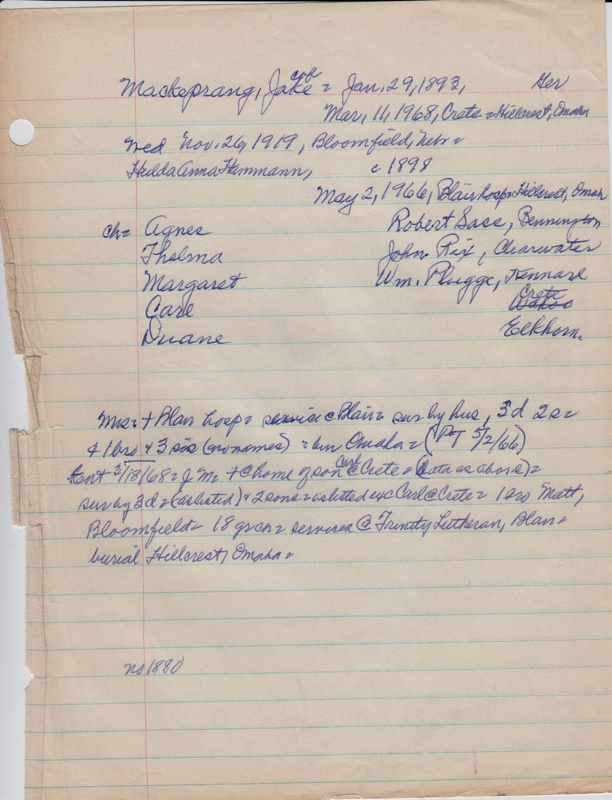 Mackeprang, Jake cob = Jan. 29, 1893, Ger
Mar. 11, 1968, Crete = Hillcrest, Omaha
Wed Nov. 26, 1919, Bloomfield, Nebr =
Hulda Anna Hammann, c 1898
May 2, 1966, Blair hosp = Hillcrest, Omah
ch = Agnes Robert Sass, Bennington
Thelma John Rix, Clearwater
Margaret Wm. Plugge, Kennard
Carl Crete Wahoo
Duane Elkhorn.
Mrs = + Blair hosp = service @ Blair = sur by hus, 3 d 2 s =
+ 1 bro + 3 sis (no names) = bur Omaha = (PT 5/2/66)
Ent 3/18/68 = J. M. + @ home of son Carl @ Crete = (data as above) =
surv by 3 d = (as listed) + 2 sons = as listed exc Carl @ Crete = 1 bro Matt,
Bloomfield = 18 grch = services @ Trinity Lutheran, Blair =
burial Hillcrest, Omaha =
no 1880